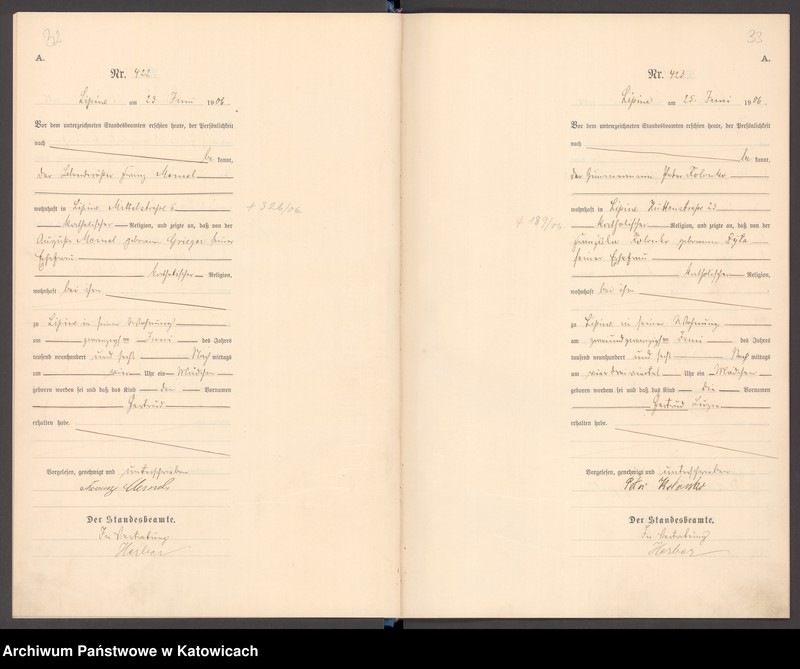 32
A.
Nr. 422
Lipine am 23. Juni 1906.
Vor dem unterzeichneten Standesbeamten erschien heute, der Persönlichkeit
nach
be kannt,
der Franz
wohnhaft in Lipine, 6
katholischer Religion, und zeigte an, daß von der
Auguste geborene seiner
Ehefrau
katholischer Religion,
wohnhaft bei ihm
zu Lipine in seiner Wohnung
am zwanzigsten Juni des Jahres
tausend neunhundert und sechs Nach mittags
um vier Uhr ein Mädchen
geboren worden sei und daß das Kind den Vornamen
Gertrud
erhalten habe.
Vorgelesen, genehmigt und unterschrieben
Franz
Der Standesbeamte.
In Vertretung
Herber
+ 326/06
33
A.
Nr. 423
Lipine am 25. Juni 1906.
Vor dem unterzeichneten Standesbeamten erschien heute, der Persönlichkeit
nach
be kannt,
der Peter Kolonko
wohnhaft in Lipine, Hüttenstraße 23
katholischer Religion, und zeigte an, daß von der
Kolonko geborene
seiner Ehefrau
katholischer Religion,
wohnhaft bei ihm
zu Lipine in seiner Wohnung
am zweiundzwanzigsten Juni des Jahres
tausend neunhundert und sechs Nach mittags
um Uhr ein Mädchen
geboren worden sei und daß das Kind die Vornamen
Gertrud
erhalten habe.
Vorgelesen, genehmigt und unterschrieben
Peter Kolonko
Der Standesbeamte.
In Vertretung
Herber
Archiwum Państwowe w Katowicach